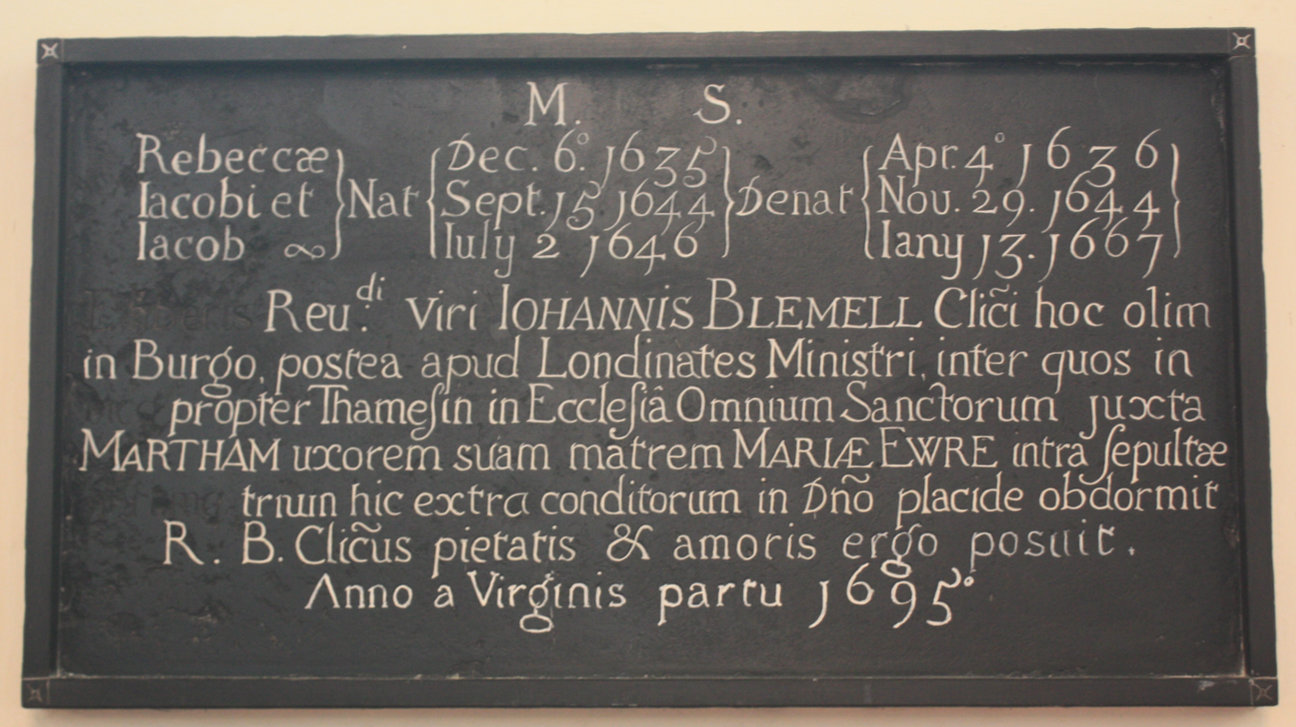 M. S.
Rebeccæ } Nat { Dec. 6.° 1635 } Denat { Apr. 4° 1636 }
Iacobi et } Nat { Sept. 15 1644 } Denat { Nov. 29. 1644 }
Iacob ∞ } { Iuly 2 1646 } { Iany 13. 1667 }
Reu.di viri IOHANNIS BLEMELL Clic̃i hoc olim
in Burgo, postea apud Londinates Ministri, inter quos in
propter Thameſin in Eccleſiâ Omnium Sanctorum juxta
MARTHAM uxorem suam matrem MARIÆ EWRE intra ſepultæ
trium hic extra conditorum in Dño placide obdormit
R. B. Clic̃us pietatis & amoris ergo posuit.
Anno a Virginis partu 1695°